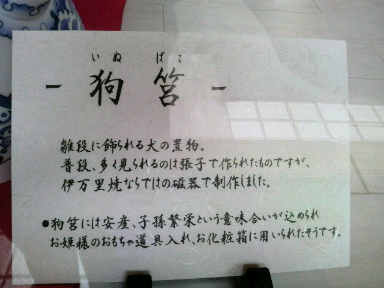 いぬばこ
- 狗筥 -
雛段に飾られる犬の置物。
普段、多く見られるのは張子で作られたものですが、
伊万里焼ならではの磁器で制作しました。
●狗筥には安産、子孫繁栄という意味合いが込められ
お姫様のおもちゃ道具入れ、お化粧箱に用いられたそうです。